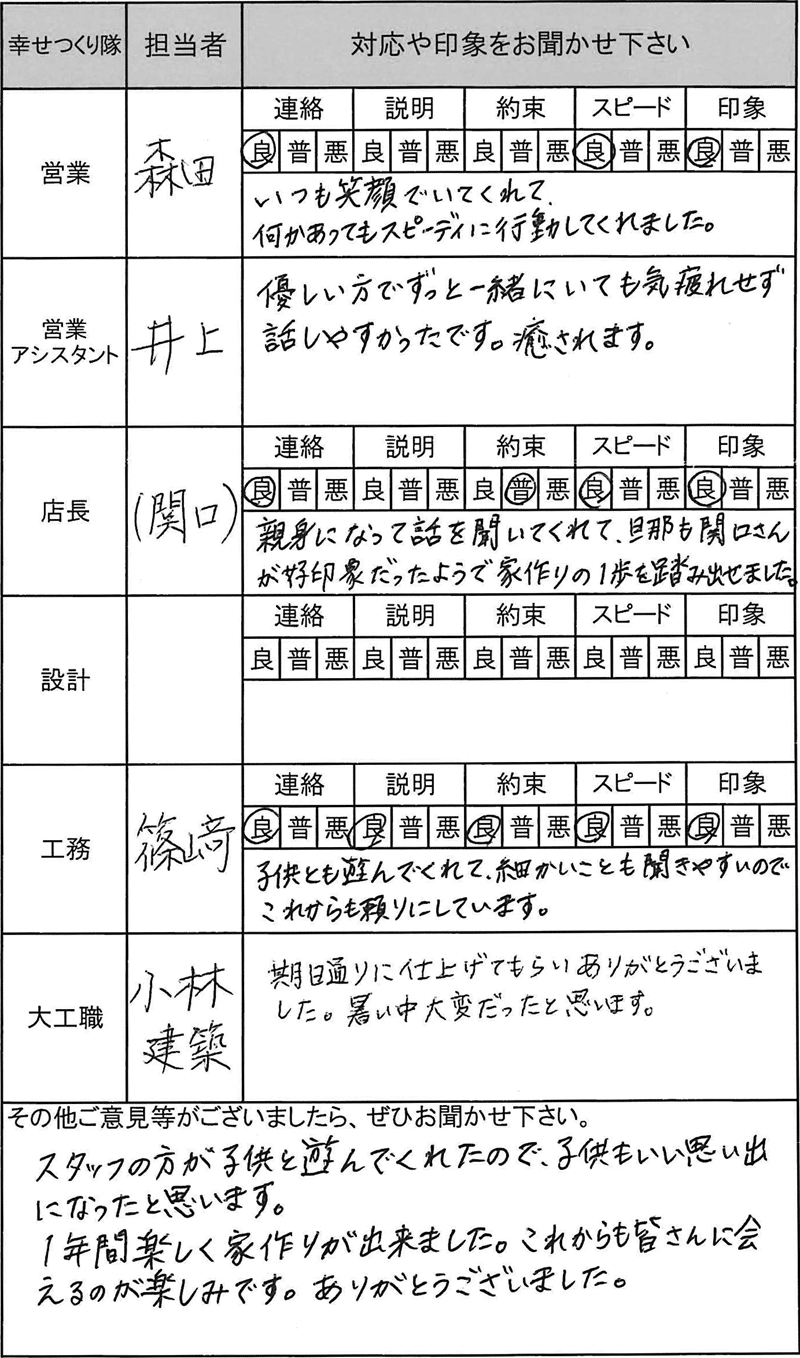 幸せつくり隊 担当者 対応や印象をお聞かせ下さい
営業 森田
連絡 説明 約束 スピード 印象
良 普 悪 良 普 悪 良 普 悪 良 普 悪 良 普 悪
いつも笑顔でいてくれて、
何かあってもスピーディに行動してくれました。
営業
アシスタント
井上
優しい方でずっと一緒にいても気疲れせず
話しやすかったです。癒されます。
店長 (関口)
連絡 説明 約束 スピード 印象
良 普 悪 良 普 悪 良 普 悪 良 普 悪 良 普 悪
親身になって話を聞いてくれて、旦那も関口さん
が好印象だったようで家作りの1歩を踏み出せました。
設計
連絡 説明 約束 スピード 印象
良 普 悪 良 普 悪 良 普 悪 良 普 悪 良 普 悪
工務 篠﨑
連絡 説明 約束 スピード 印象
良 普 悪 良 普 悪 良 普 悪 良 普 悪 良 普 悪
子供とも遊んでくれて、細かいことも聞きやすいので
これからも頼りにしています。
大工職
小林
建築
期日通りに仕上げてもらいありがとうございま
した。暑い中大変だったと思います。
その他ご意見等がございましたら、ぜひお聞かせ下さい。
スタッフの方が子供と遊んでくれたので、子供もいい思い出
になったと思います。
1年間楽しく家作りが出来ました。これからも皆さんに会
えるのが楽しみです。ありがとうございました。